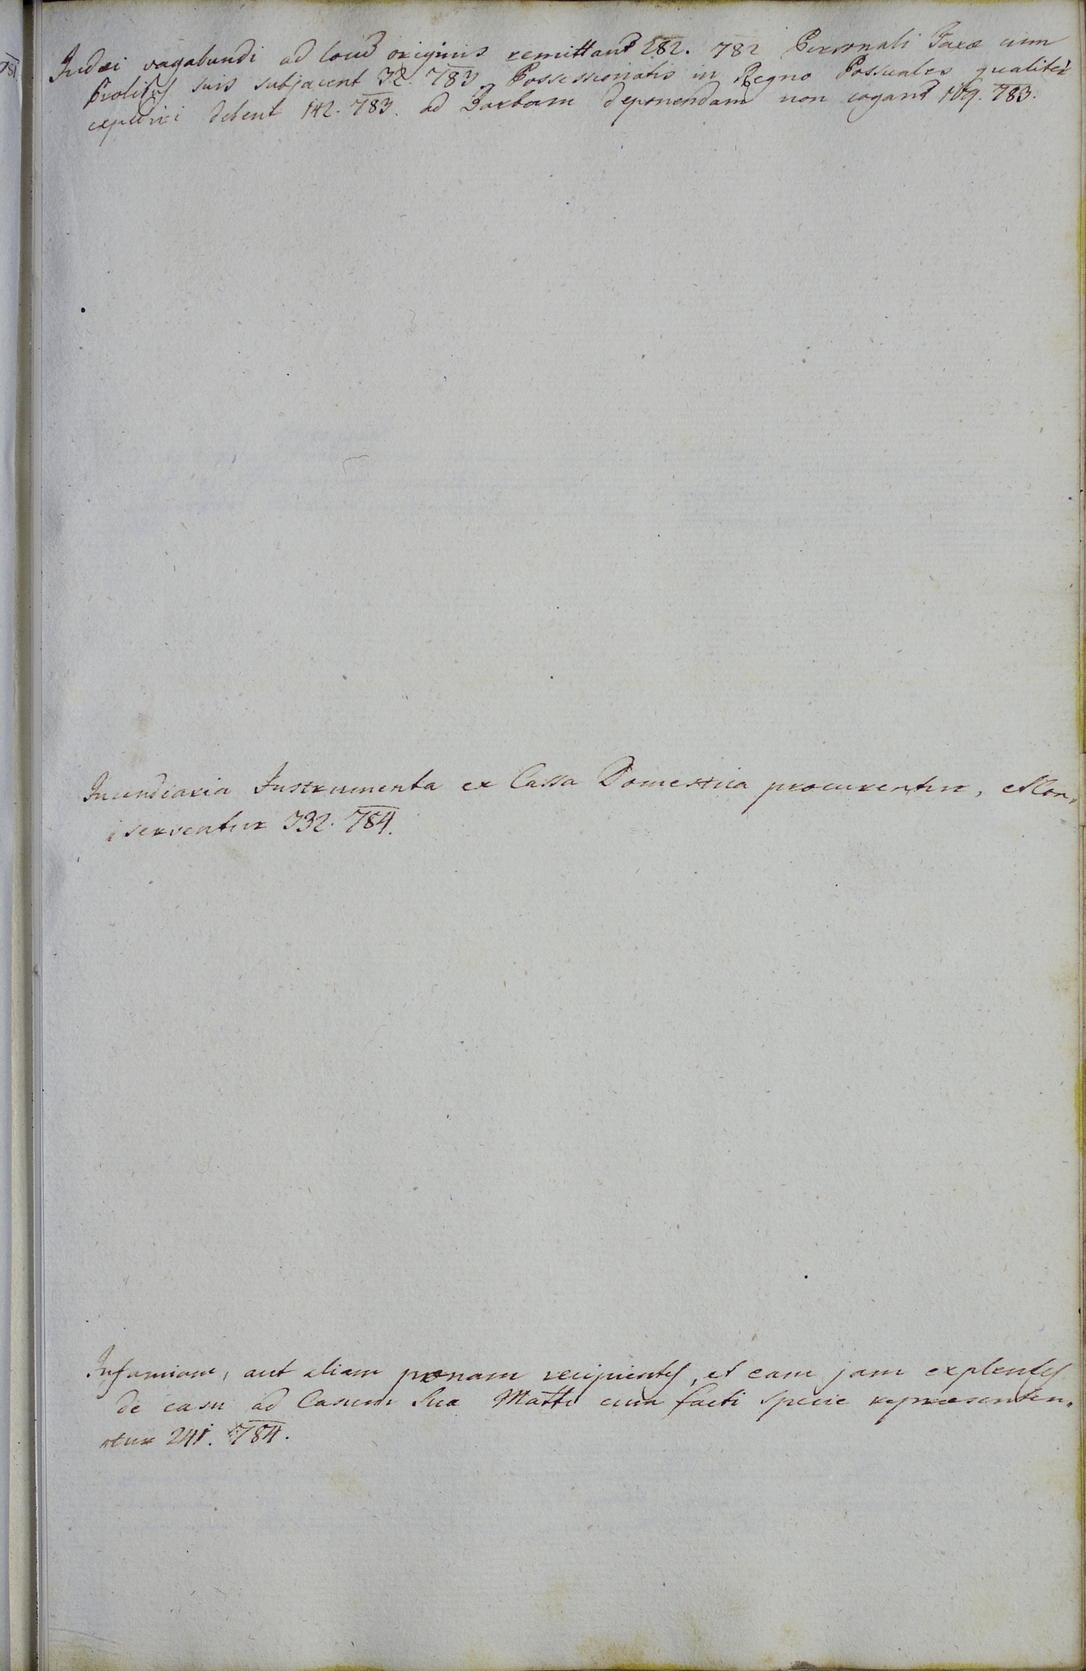 Judæi vagabundi ad locū originis remittant 282. 782 Personali Taxæ cum
Prolibꝰ suis subjacent 32. 783 Possessionatis in Regno Possunales qualiter
expediri debent 142. 783. ad Barbam deponendam non cogant 109. 783.
Incendiaria Instrumenta ex Cassa Domestica procurentur, et Con-
serventur 332. 784.
Infamiam, aut aliam pœnam recipientes, et eam jam explentes
de casu ad Casum Suæ Matti cum facti specie repræsenten-
tur 241. 784.